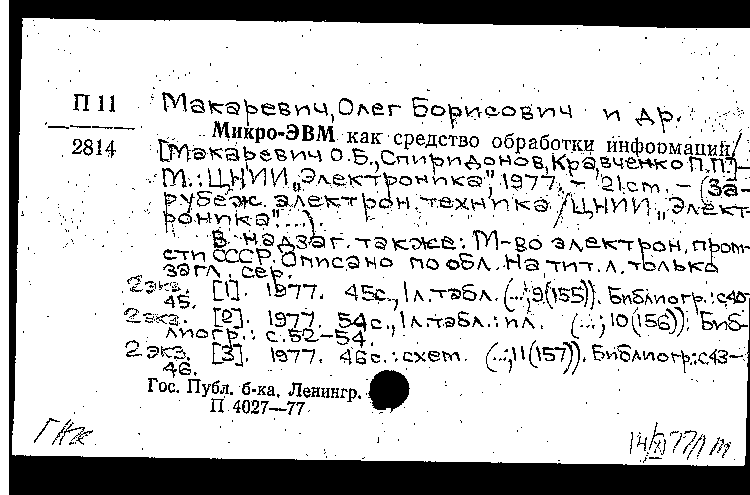 П 11 Макаревич, Олег Борисович и др.
Микро-ЭВМ как средство обработки информации/
2814 [Макаревич О.Б., Спиридонов, Кравченко П.П.] –
М.: ЦНИИ „Электроника", 1977. – 21 cm. – (За-
рубеж. электрон. техника / ЦНИИ „Элект-
роника"...).
В надзаг. также: М-во электрон. пром-
сти СССР. Описано по обл. На тит. л. только
загл. сер.
2 экз. [1]. 1977. 45 с., 1 л. табл. (...; 9(155)). Библиогр.: с. 40-
45.
2 экз. [2]. 1977. 54 с., 1 л. табл.: ил. (...; 10(156)). Биб-
лиогр.: с. 52–54.
2 экз. [3]. 1977. 46 с.: схем. (...; 11(157)). Библиогр.: с. 43–
46.
Гос. Публ. б-ка. Ленингр.
П 4027—77